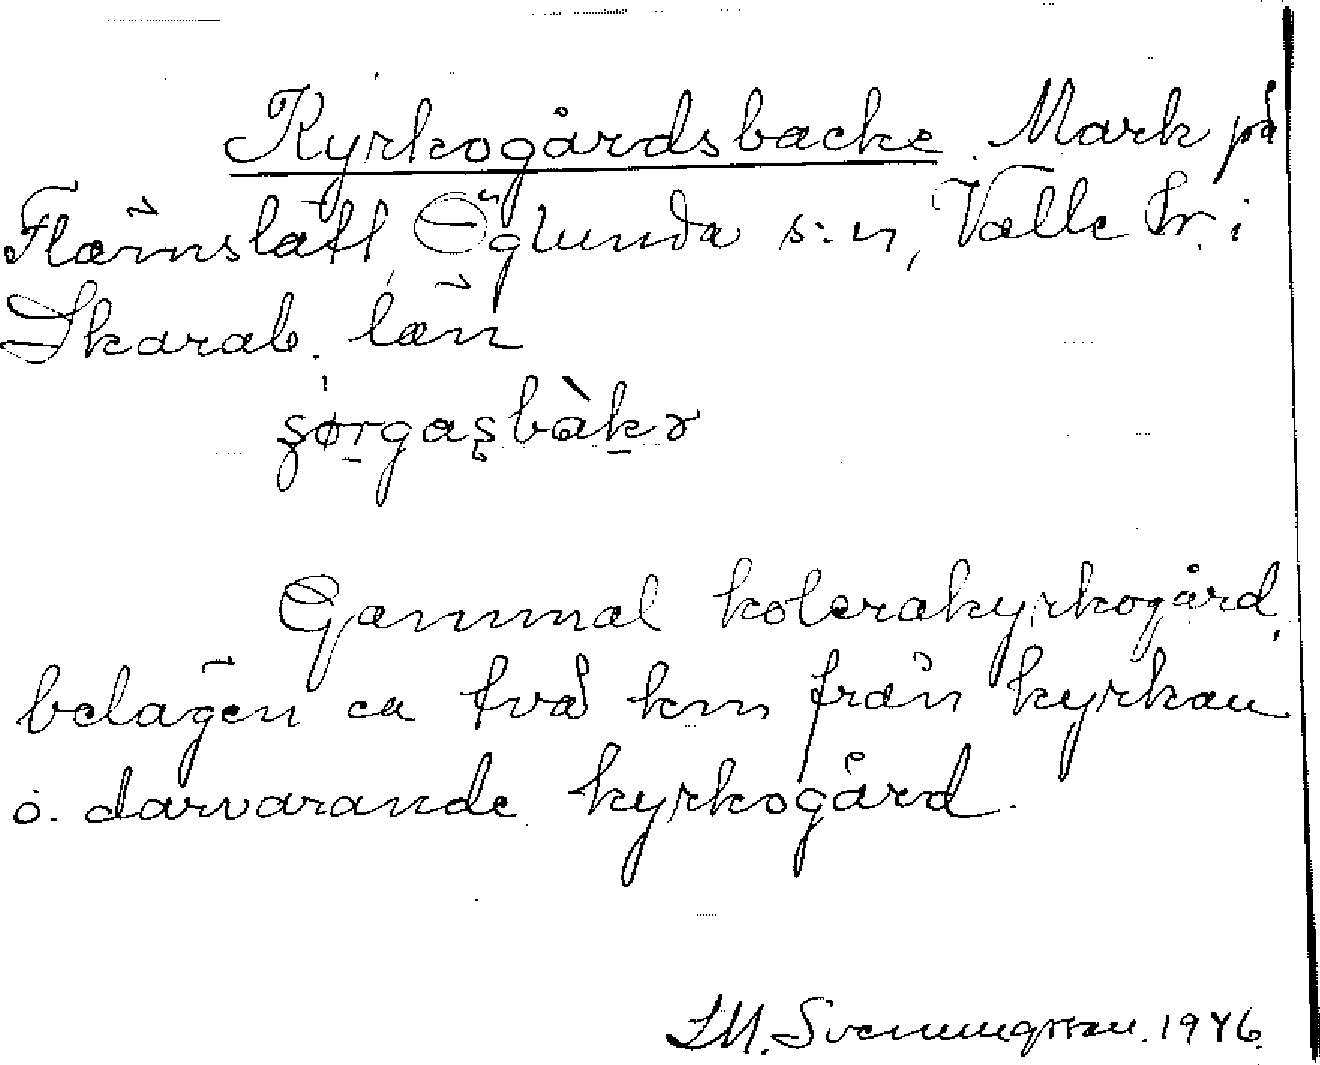 Kyrkogårdsbacke. Mark på
Flämslätt, Öglunda s:n, Valle hr. i
Skarab. län
Gammal kolerakyrkogård,
belägen ca två km från kyrkan
o. därvarande kyrkogård.
1946.